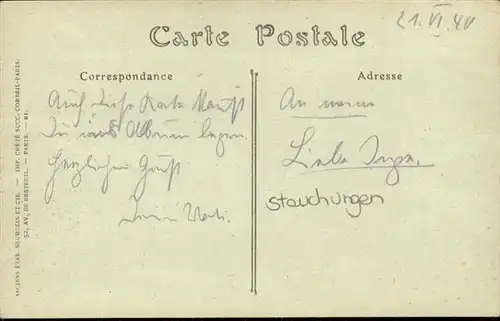 21.VI.40
Carte Postale
Correspondance
Adresse
Auch diese Karte kannst
Du ins Album legen.
Herzlichen Gruß
An meine
Liebe Inge.
stauchungen
ANCIENS ÉTAB. NEURDEIN ET CIE. — IMP. CRÉTÉ SUCC. CORBEIL-PARIS.
52, AV. DE BRETEUIL. — PARIS. —